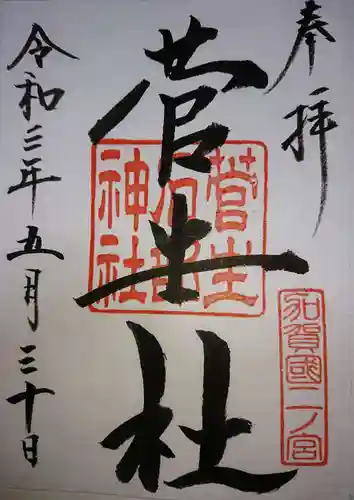 奉拝
菅生社
菅生石部神社
加賀國二ノ宮
令和三年五月三十日